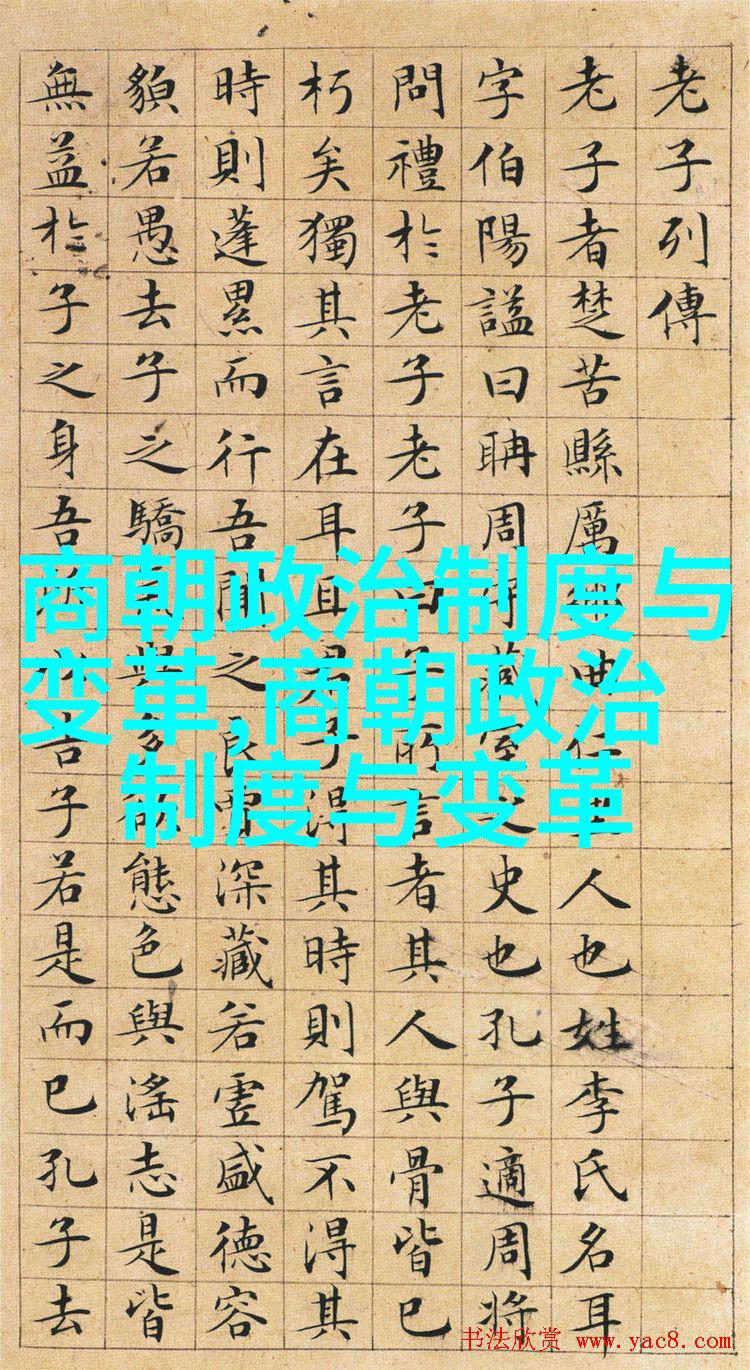 老子列傳
老子者楚苦縣厲曲仁人也姓李氏名耳
字伯陽謚曰耼周守藏室之史也孔子適周將
問禮於老子老子曰子所言者其人與骨皆已
朽矣獨其言在耳且君子淂其時則駕不淂其
時則蓬累而行吾聞之良賈深藏若虛盛德容
貌若愚去子之驕氣與多欲態色與滛志是皆
無益於子之身吾所以告子若是而已孔子去
商朝政治制度与
变革,商朝政治
制度与变革
书法欣赏 www.yac8.com